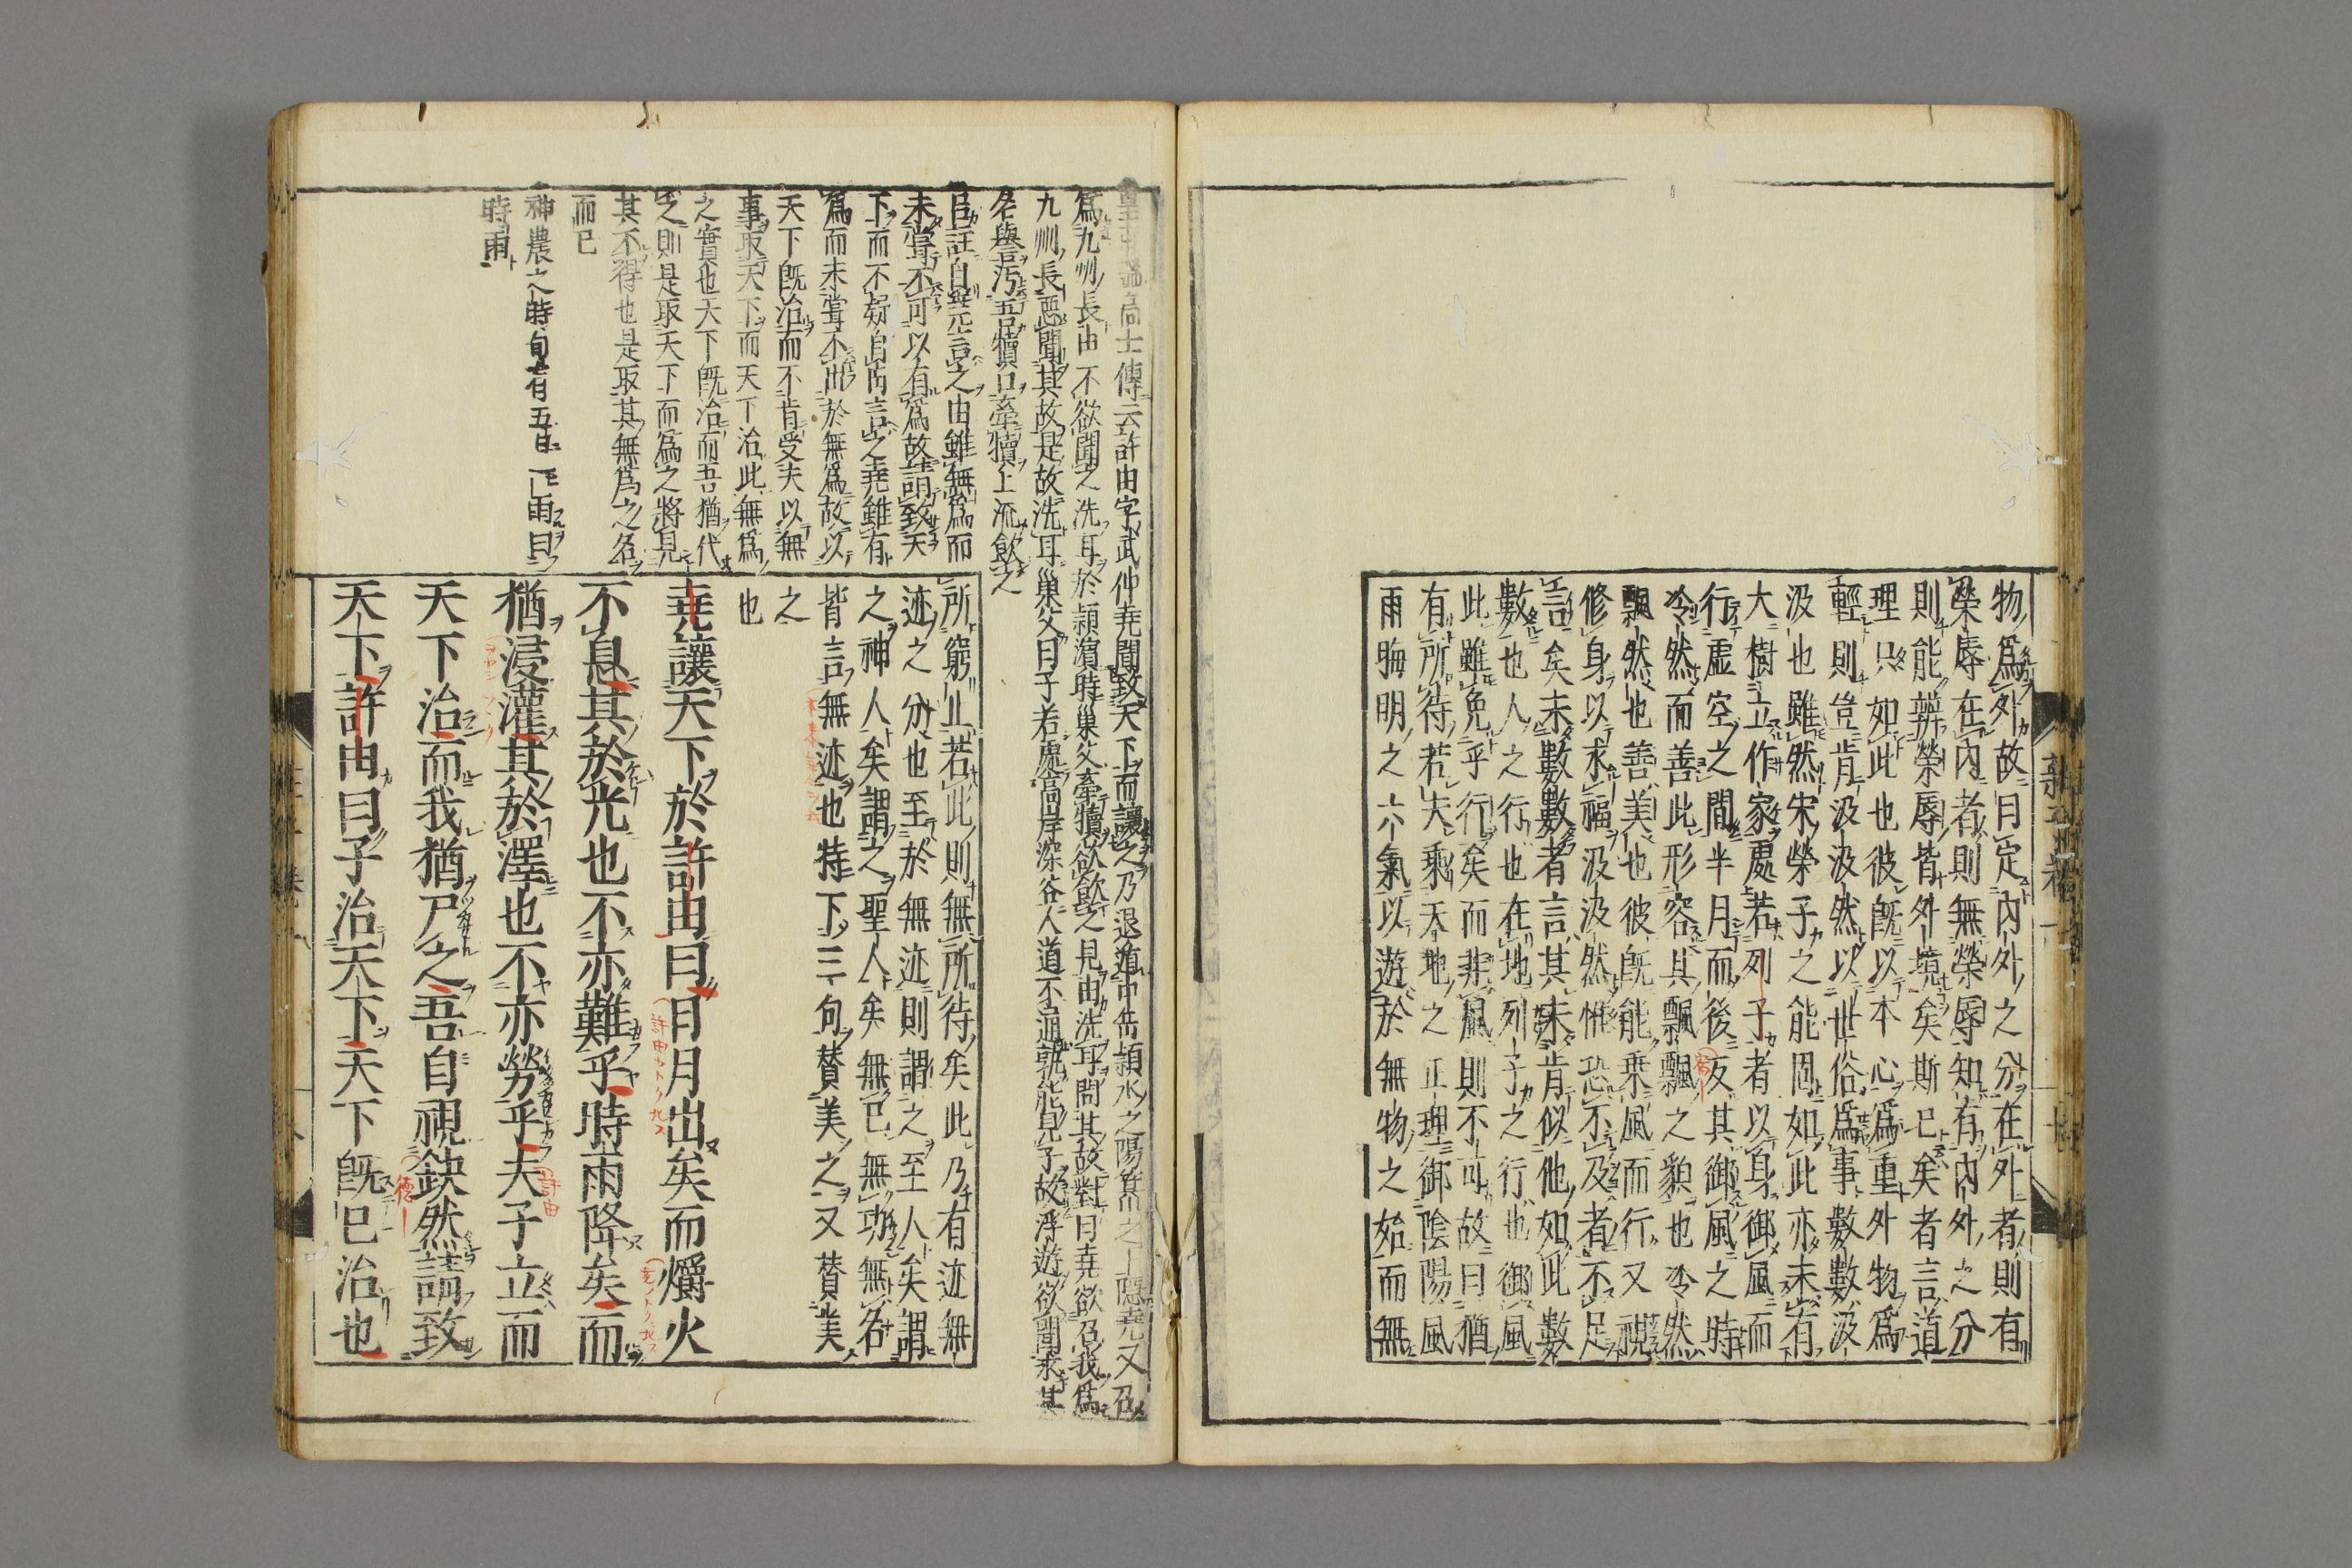 物爲外故曰定內外之分在外者則有
榮辱在內者則無榮辱知有內外之分
則能辨榮辱皆外境矣斯已矣者言道
理只如此也彼旣以本心爲重外物爲
輕則豈肯汲汲然以世俗爲事數數汲
汲也雖然宋榮子之能固如此亦未有
大樹立作家處若列子者以身御風而
行虛空之間半月而後反其御風之時
冷然而善此形容其飄飄之貌也冷然
飄然也善美也彼旣能乘風而行又視
修身以求福汲汲然惟恐不及者不足
言矣未數數者言其未肯似他如此數
數也人之行也在地列子之行也御風
此雖免乎行矣而非風則不可故曰猶
有所待若夫乘天地之正理御陰陽風
雨晦明之六氣以遊於無物之始而無
高士傳云許由字武仲堯聞致天下而讓之乃退遁中岳潁水之陽箕山之下隱堯又召
爲九州長由不欲聞之洗耳於潁濱時巢父牽犢欲飲之見由洗耳問其故對曰堯欲召我爲
九州長惡聞其故是故洗耳巢父曰子若處高岸深谷人道不通孰能見子故浮遊欲聞求其
名譽汚吾犢口牽犢上流飲之
臣註自堯言之由雖無爲而
未嘗不可以有爲故請致天
下而不疑自由言之堯雖有
爲而未嘗不出於無爲故以
天下旣治而不肯受夫以無
事取天下而天下治此無爲
之實也天下旣治而吾猶代
之則是取天下而爲之將見
其不得也是取其無爲之名
而已
神農之時旬有五日一雨曰
時雨
所窮止若此則無所待矣此乃有迹無
迹之分也至於無迹則謂之至人矣謂
之神人矣謂之聖人矣無己無功無名
皆言無迹也特下三句贊美之又贊美
之
也
堯讓天下於許由曰日月出矣而爝火
不息其於光也不亦難乎時雨降矣而
猶浸灌其於澤也不亦勞乎夫子立而
天下治而我猶尸之吾自視缺然請致
天下許由曰子治天下天下旣已治也